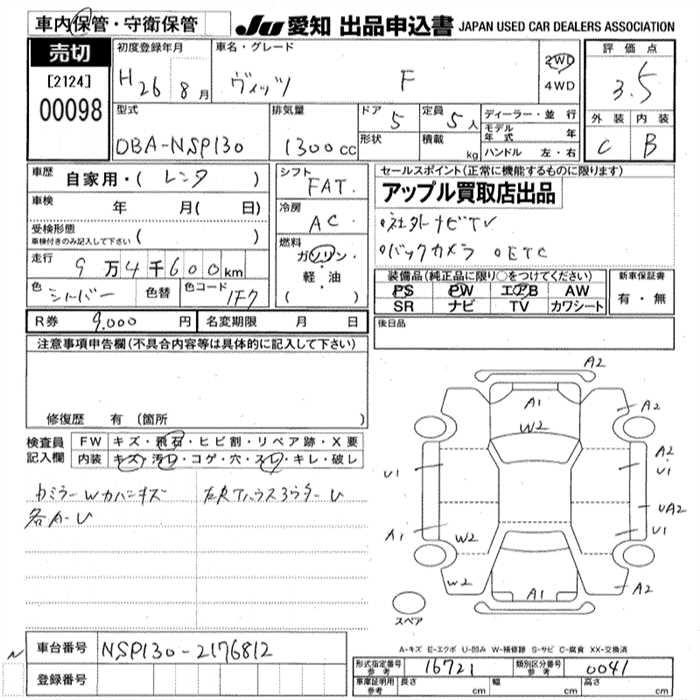 車内保管・守衛保管
JU 愛知 出品申込書 JAPAN USED CAR DEALERS ASSOCIATION
売切
[2124]
00098
初度登録年月
H 26 8月
車名・グレード
ヴィッツ F
2WD
4WD
評価点
3.5
外装 内装
C B
型式
DBA-NSP130
排気量
1300cc
ドア 5
形状
定員 5人
積載 kg
ディーラー・並行
モデル年式 年
ハンドル 左・右
車歴
自家用・( レンタ )
車検
年 月( 日)
受検形態
車検付きのみ記入して下さい ( )
走行
9万4千600km
色 シルバー 色替 色コード 1F7
シフト
FAT.
冷房
AC
燃料
ガソリン・
軽・油
( )
セールスポイント(正常に機能するものに限ります)
アップル買取店出品
○社外ナビTV
○バックカメラ ○ETC
装備品(純正品に限り○をつけてください)
PS PW エアB AW
SR ナビ TV カワシート
新車保証書
有・無
R券 9,000円 名変期限 月 日
後日品
注意事項申告欄(不具合内容等は具体的に記入して下さい)
修復歴 有 (箇所 )
検査員
記入欄
FW キズ・飛石・ヒビ割・リペア跡・X要
内装 キズ・汚レ・コゲ・穴・スレ・キレ・破レ
各A・U
A2
A1
A2
W2
U1
A2
U1
UA2
A1
W2
U1
W2
A1
A2
スペア
A-キズ E-エクボ U-凹み W-補修跡 S-サビ C-腐食 XX-交換済
車台番号 NSP130-2176812
登録番号
型式指定番号 参考 16721
類別区分番号 参考 0041
車庫証明用 参考 長さ cm 幅 cm 高さ cm